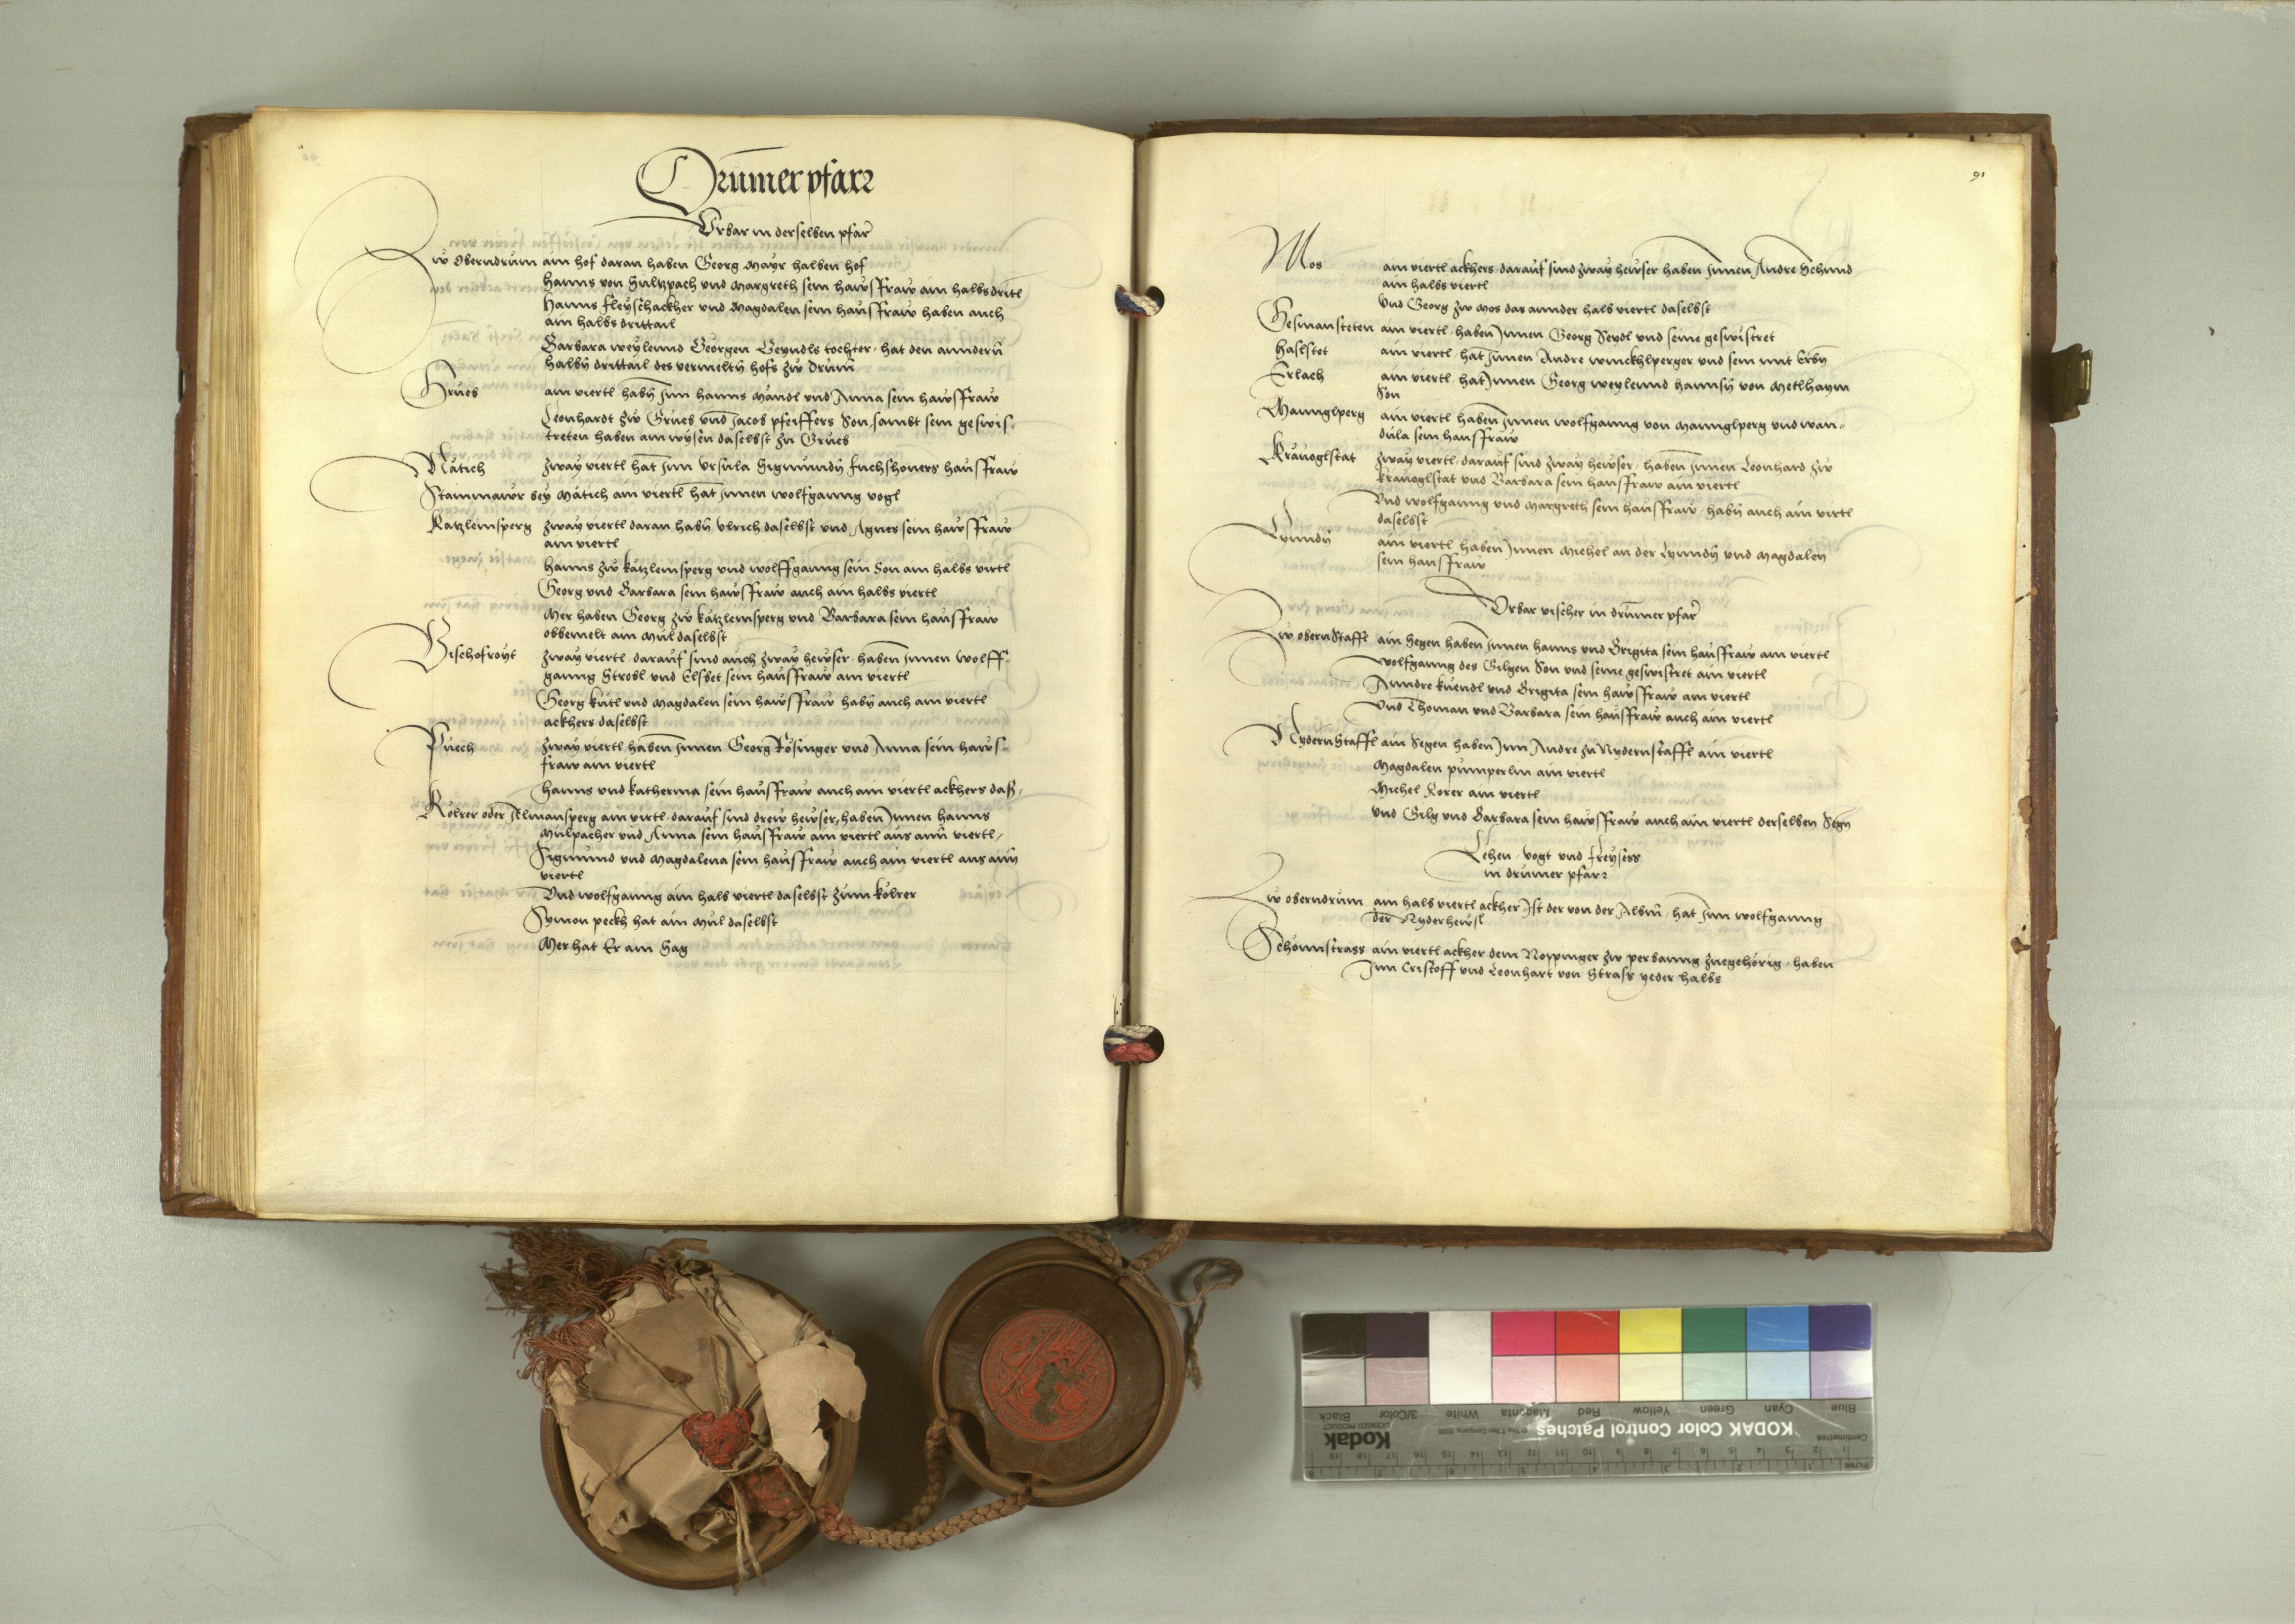 Drumer pfarr
Urbar in derselben pfarr
Zw Oberndrum ain hof daran haben Georg Mayr halben hof
Hanns von Sultzpach und Margreth sein hawsfraw ain halbs dritl
Hanns Fleyschackher und Magdalen sein hausfraw haben auch
ain halbs drittail
Barbara weylennd Georgen Beyndls tochter hat den anndern
halbn drittail des vermeltn hofs zw Drum
Grues ain viertl habn Inn Hanns Mändl und Anna sein hawsfraw
Leonhardt zw Grues und Jacob pfeiffers Son sambt sein geswis-
treten haben ain wysen daselbst zu Grues
Mätich zway viertl hat Inn Ursula Sigmundn Fuchshoners hausfraw
Stainmawr bey Mätich ain viertl hat Innen Wolfganng Vogl
Katzleinsperg zway viertl daran habn Ulrich daselbst und Agnes sein hawsfraw
ain viertl
Hanns zw Katzleinsperg und Wolffganng sein Son ain halbs virtl
Georg und Barbara sein hawsfraw auch ain halbs viertl
Mer haben Georg zw Katzleinsperg und Barbara sein hausfraw
obbemelt ain Mül daselbst
Bischofroyt zway viertl darauf sind auch zway hewser haben Innen Wolff-
ganng Strobl und Elsbet sein hausfraw ain viertl
Georg Kütl und Magdalen sein hawsfraw habn auch ain viertl
ackhers daselbst
Puech zway viertl haben Innen Georg Rösinger und Anna sein haws-
fraw ain viertl
Hanns und Katherina sein hausfraw auch ain viertl ackhers das
Kölrer oder Elmansperg ain virtl darauf sind drew hewser haben Innen Hanns
Mülpacher und Anna sein hausfraw ain viertl aus aim viertl
Sigmund und Magdalena sein hausfraw auch ain viertl aus aim
viertl
Und Wolfganng ain halb viertl daselbst zum Kölrer
Symon peckh hat ain Mül daselbst
Mer hat Er ain Sag
91
Mos ain viertl ackhers darauf sind zway hewser haben Innen Andre Schmid
ain halbs viertl
Und Georg zw Mos das annder halb viertl daselbst
Gesmansteten ain viertl haben Innen Georg Seydl und seine geswistret
Haslstet ain viertl hat Innen Andre Winckhlperger und sein mit Erbn
Erlach ain viertl hat Innen Georg weylennd Hannsn von Metlhaym
Son
Mannglperg ain viertl haben Innen Wolfganng von Mannglperg und Wan-
dula sein hausfraw
Kräuoglstat zway viertl darauf sind zway hewser haben Innen Leonhard zw
Kräuoglstat und Barbara sein hausfraw ain viertl
Und Wolfganng und Margreth sein hausfraw habn auch ain virtl
daselbst
Lynndn ain viertl haben Innen Michel an der Lynndn und Magdalen
sein hausfraw
Urbar vischer in drumer pfarr
Zw obernstaffl ain Segen haben Innen Hanns und Brigita sein hausfraw ain viertl
Wolfganng des Gilgen Son und seine geswistret ain viertl
Anndre Kuendl und Brigita sein hawsfraw ain viertl
Und Thoman und Barbara sein hausfraw auch ain viertl
Nydernstaffl ain Segen haben Inn Andre zu Nydernstaffl ain viertl
Magdalen pumperlin ain viertl
Michel Lorer ain viertl
und Gilg und Barbara sein hawsfraw auch ain viertl derselben Segn
Lehen vogt und freysess
in drumer pfarr
Zw oberndrum ain halb viertl ackher Ist der von der Albm hat Inn Wolfganng
der Nyderhewsl
Schönnstrass ain viertl ackher dem Noppinger zw perbanng zuegehörig haben
Inn Cristoff und Leonhart von Strass yeder halbs
KODAK Color Control Patches
Kodak
LICENSED PRODUCT
Black
3/Color
White
Magenta
Red
Yellow
Green
Cyan
Blue
Centimetres
Inches